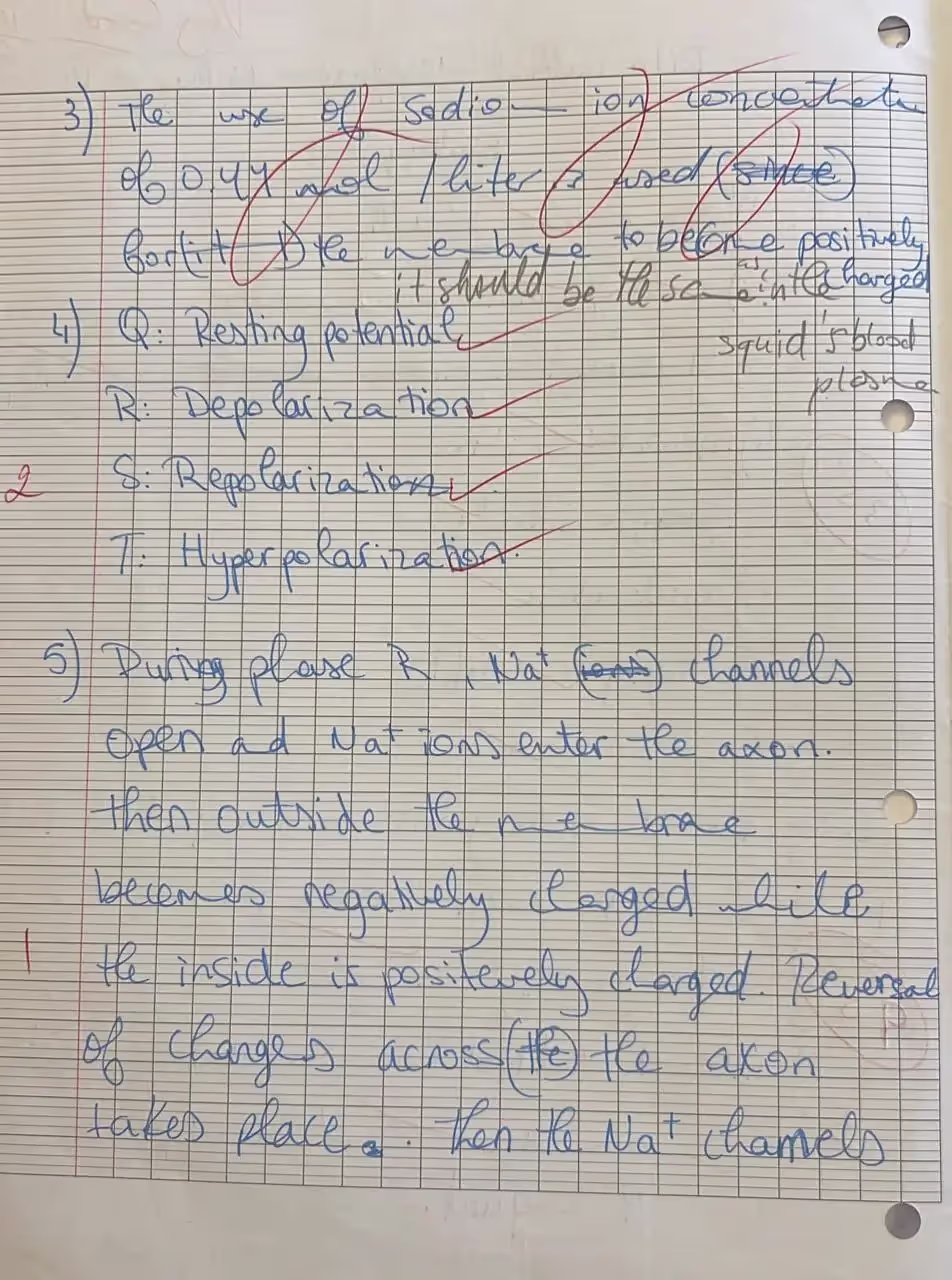 3) The use of Sodium ion concentration
of 0,44 mol / liter is used (since)
for (it) the membrane to become positively
charged
it should be the same as in the
squid's blood
plasma
4) Q: Resting potential
R: Depolarization
2 S: Repolarization
T: Hyperpolarization.
5) During phase R, Na+ (ions) channels
open and Na+ ions enter the axon.
then outside the membrane
becomes negatively charged while
1 the inside is positevely charged. Reversal
of changes across (the) the axon
takes place. then the Na+ channels